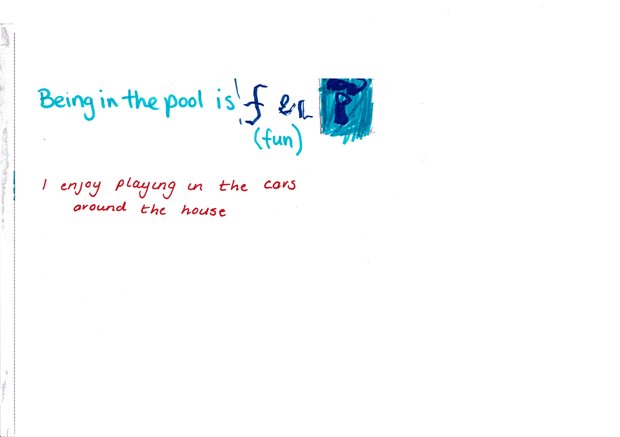 Being in the pool is fun
(fun)
I enjoy playing in the cars
around the house